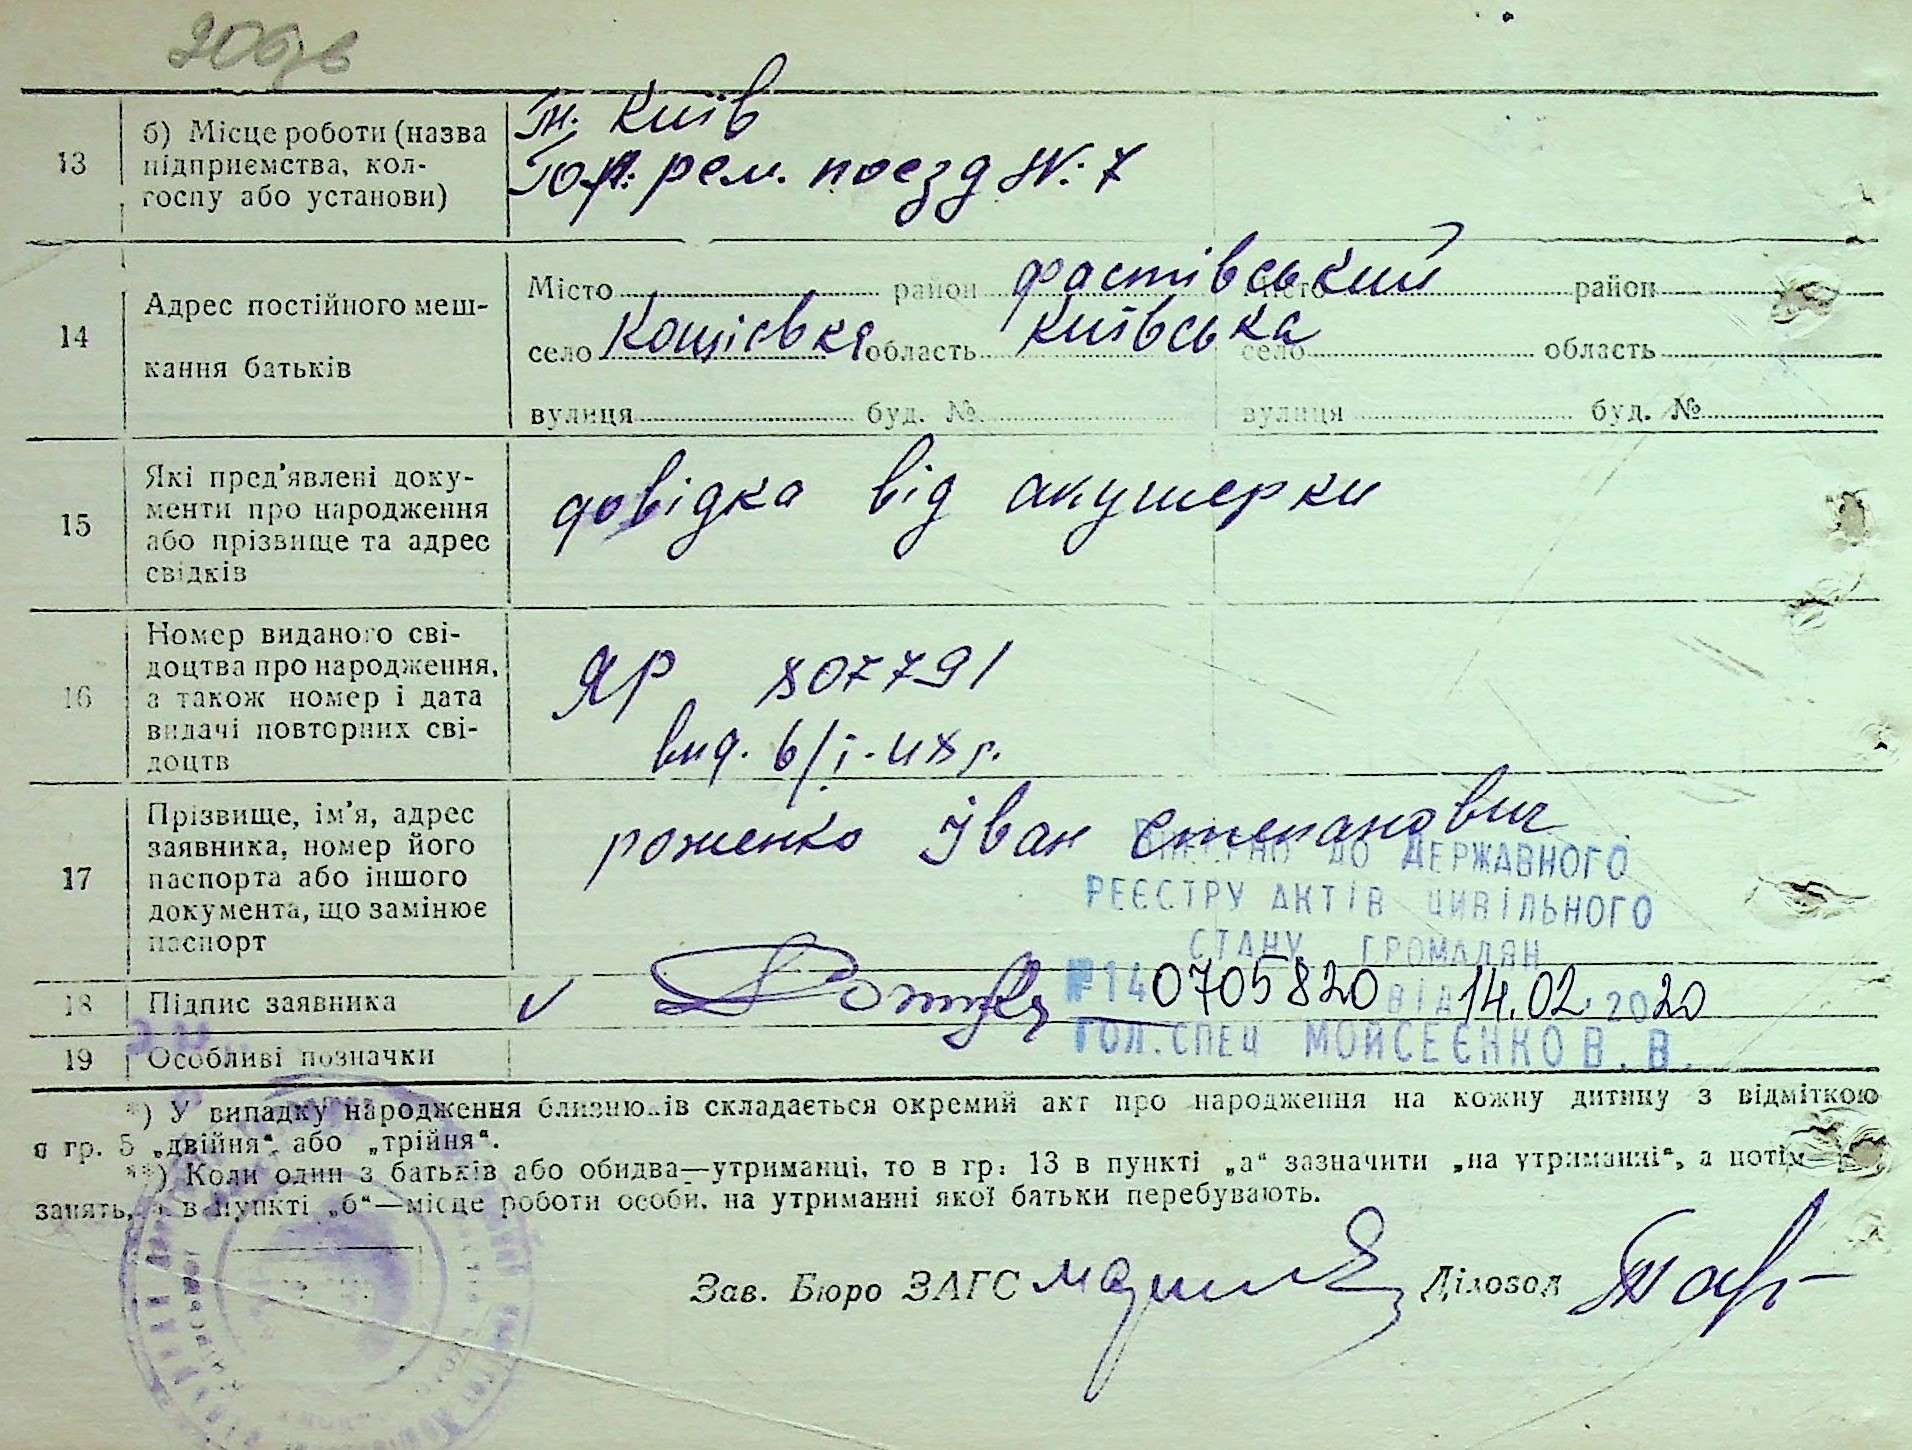 206зв
13
б) Місце роботи (назва
підприємства, кол-
госпу або установи)
м. Київ
Гол. рем. поезд №: 7
14
Адрес постійного меш-
кання батьків
Місто район фастівський Місто район
село Кощіївка область Київська село область
вулиця буд. № вулиця буд. №
15
Які пред'явлені доку-
менти про народження
або прізвище та адрес
свідків
довідка від акушерки
16
Номер виданого сві-
доцтва про народження,
а також номер і дата
видачі повторних сві-
доцтв
ЯР 807791
вид. 6/I-48 р.
17
Прізвище, ім'я, адрес
заявника, номер його
паспорта або іншого
документа, що замінює
паспорт
роженко Іван Степанович
ВНЕСЕНО ДО ДЕРЖАВНОГО
РЕЄСТРУ АКТІВ ЦИВІЛЬНОГО
СТАНУ ГРОМАДЯН
№ 140705820 ВІД 14.02.2020
ГОЛ.СПЕЦ МОЙСЕЄНКО В. В.
18
Підпис заявника
19
Особливі позначки
*) У випадку народження близнюків складається окремий акт про народження на кожну дитину з відміткою
в гр. 5 „двійня“ або „трійня“.
**) Коли один з батьків або обидва—утриманці, то в гр. 13 в пункті „а“ зазначити „на утриманні“, а потім
занять, а в пункті „б“—місце роботи особи, на утриманні якої батьки перебувають.
Зав. Бюро ЗАГС Діловод